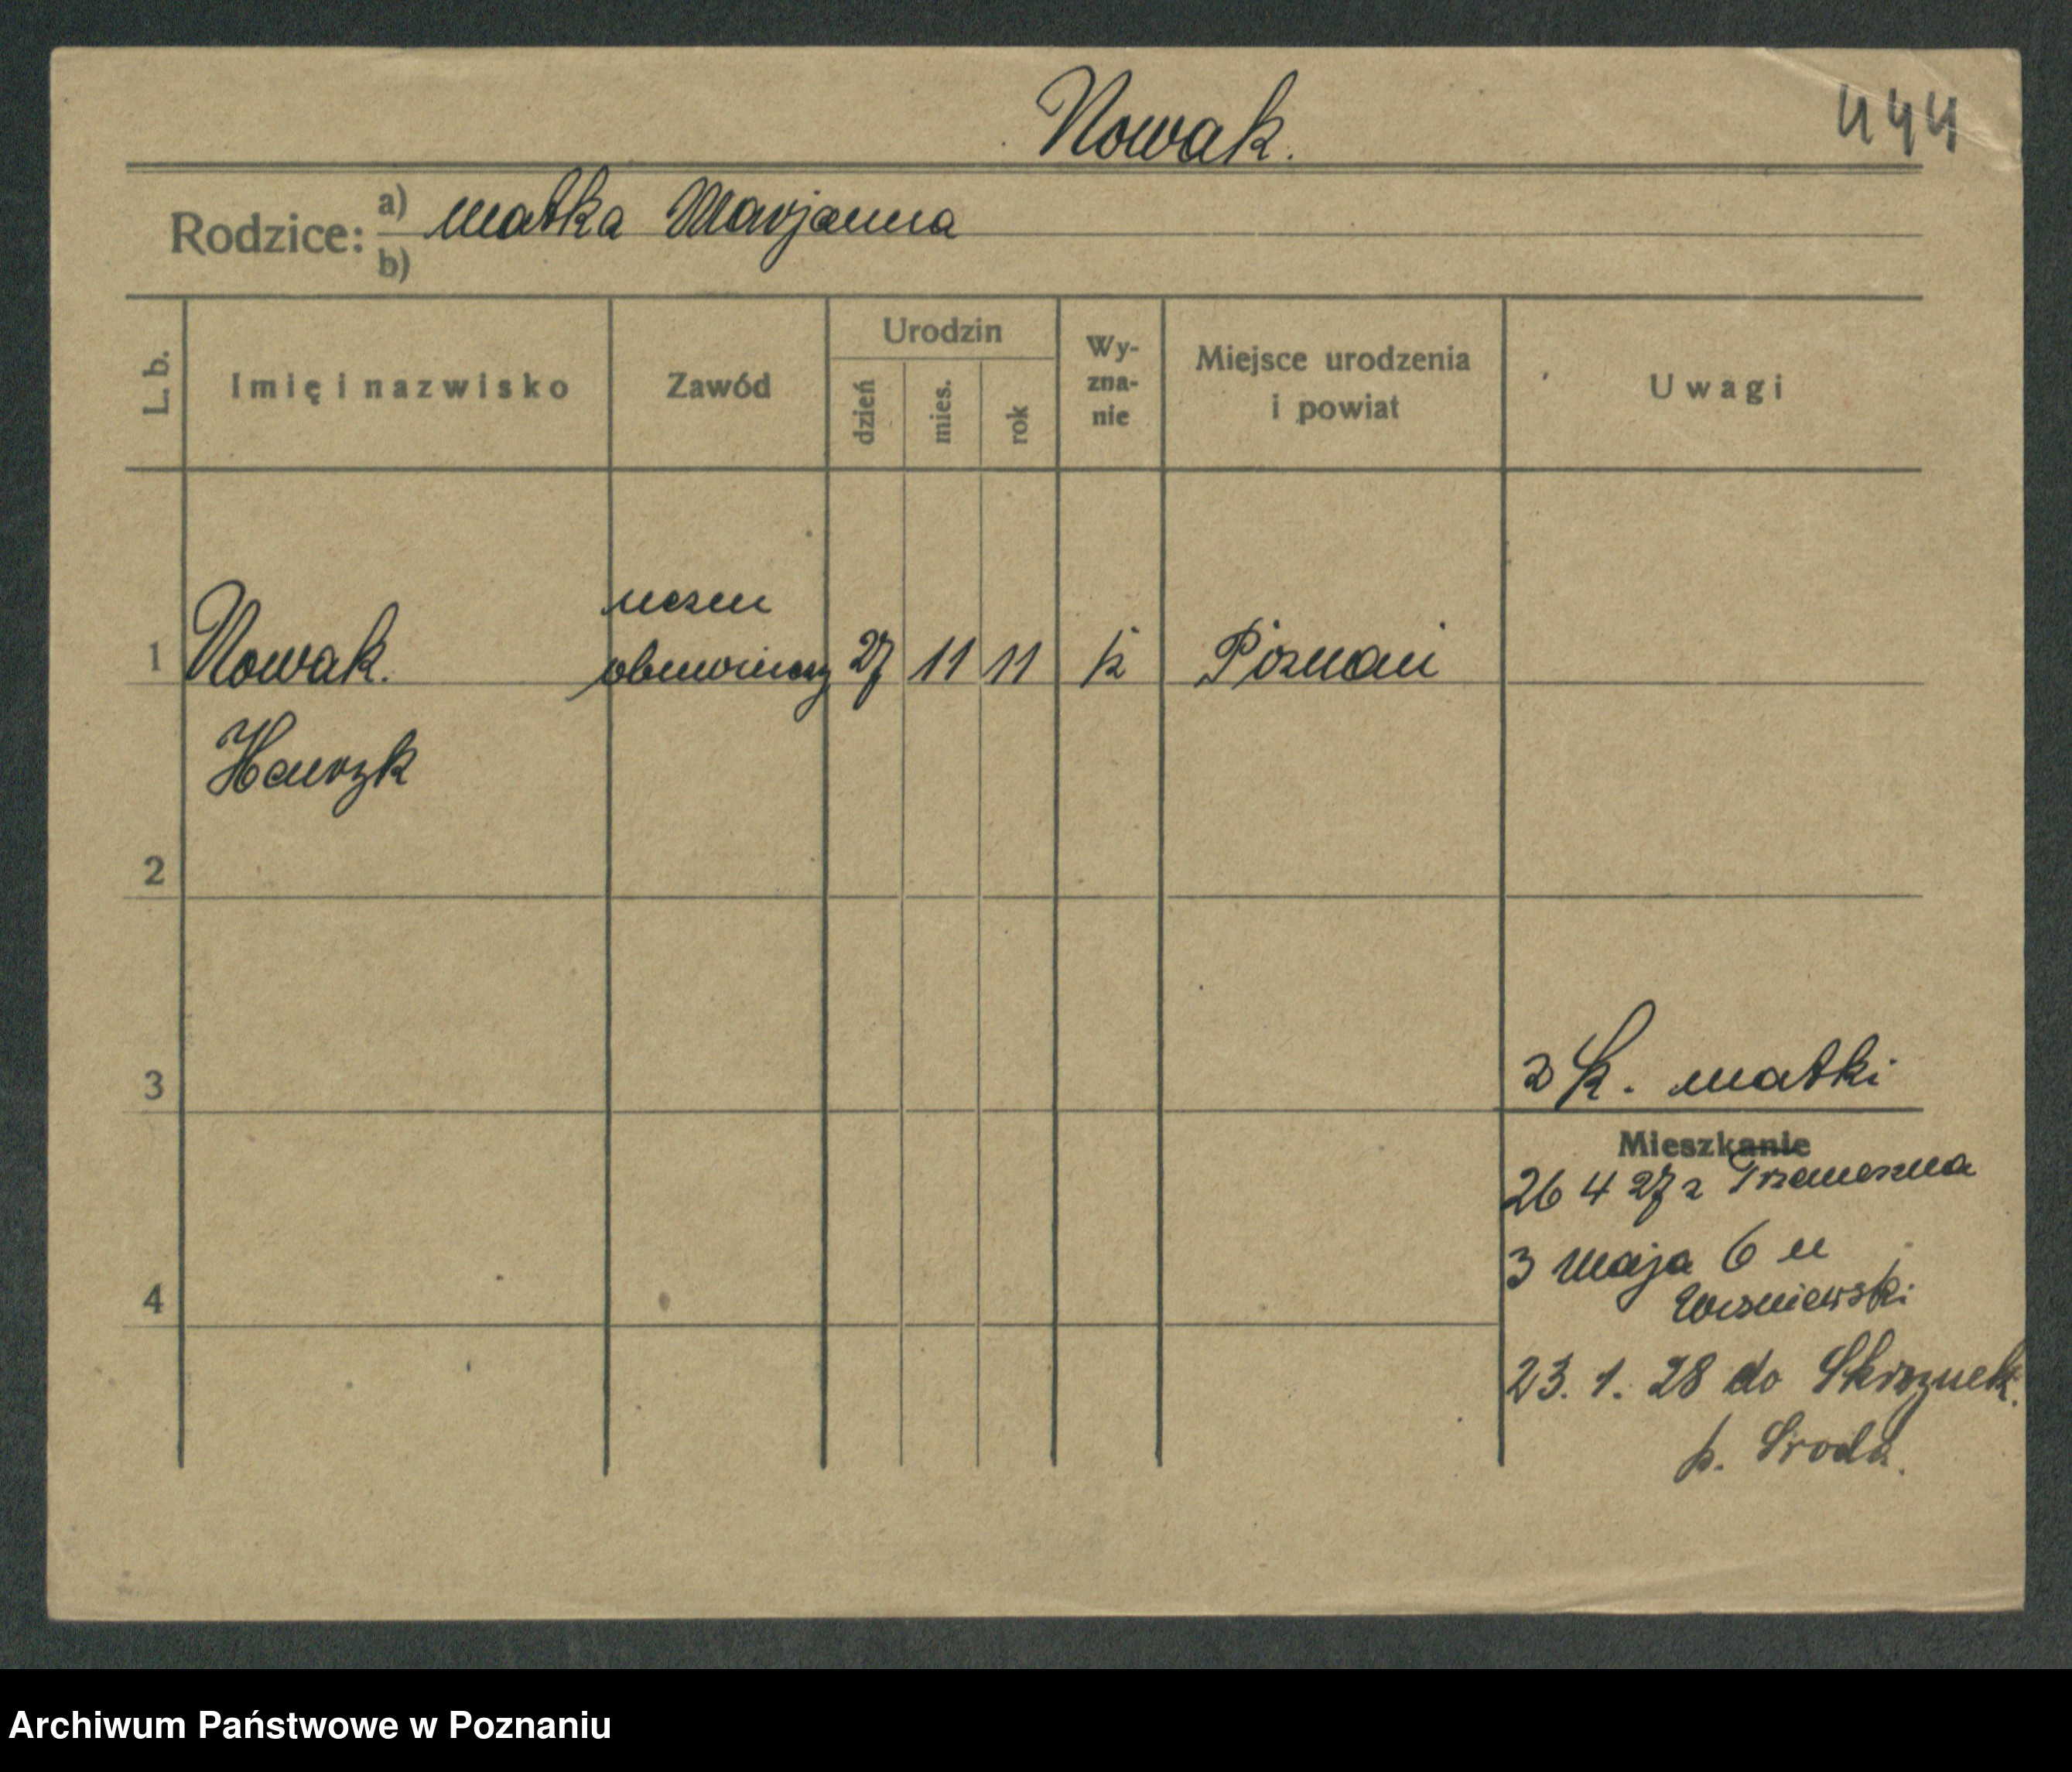 Nowak.
444
Rodzice: a) matka Marjanna
b)
L. b.
Imię i nazwisko
Zawód
Urodzin
dzień
mies.
rok
Wy-
zna-
nie
Miejsce urodzenia
i powiat
Uwagi
uczeń
1 Nowak. obuwniczy 27 11 11 k Poznań
Henryk
2
3
z k. matki
Mieszkanie
26 4 27 z Trzemeszna
3 Maja 6 u
Wiśniewski
4
23. 1. 28 do Skrzynek.
p. Środa.
Archiwum Państwowe w Poznaniu